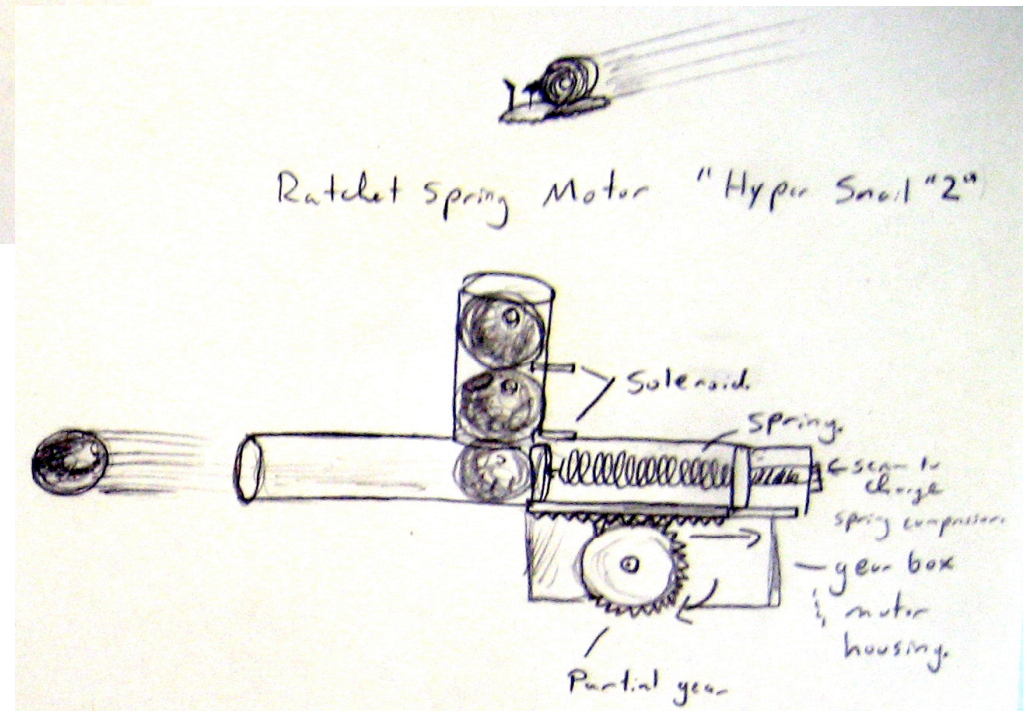 Ratchet Spring Motor "Hyper Snail "2"
Solenoid.
Spring.
screw to
change
spring compression.
gear box
motor
housing.
Partial gear